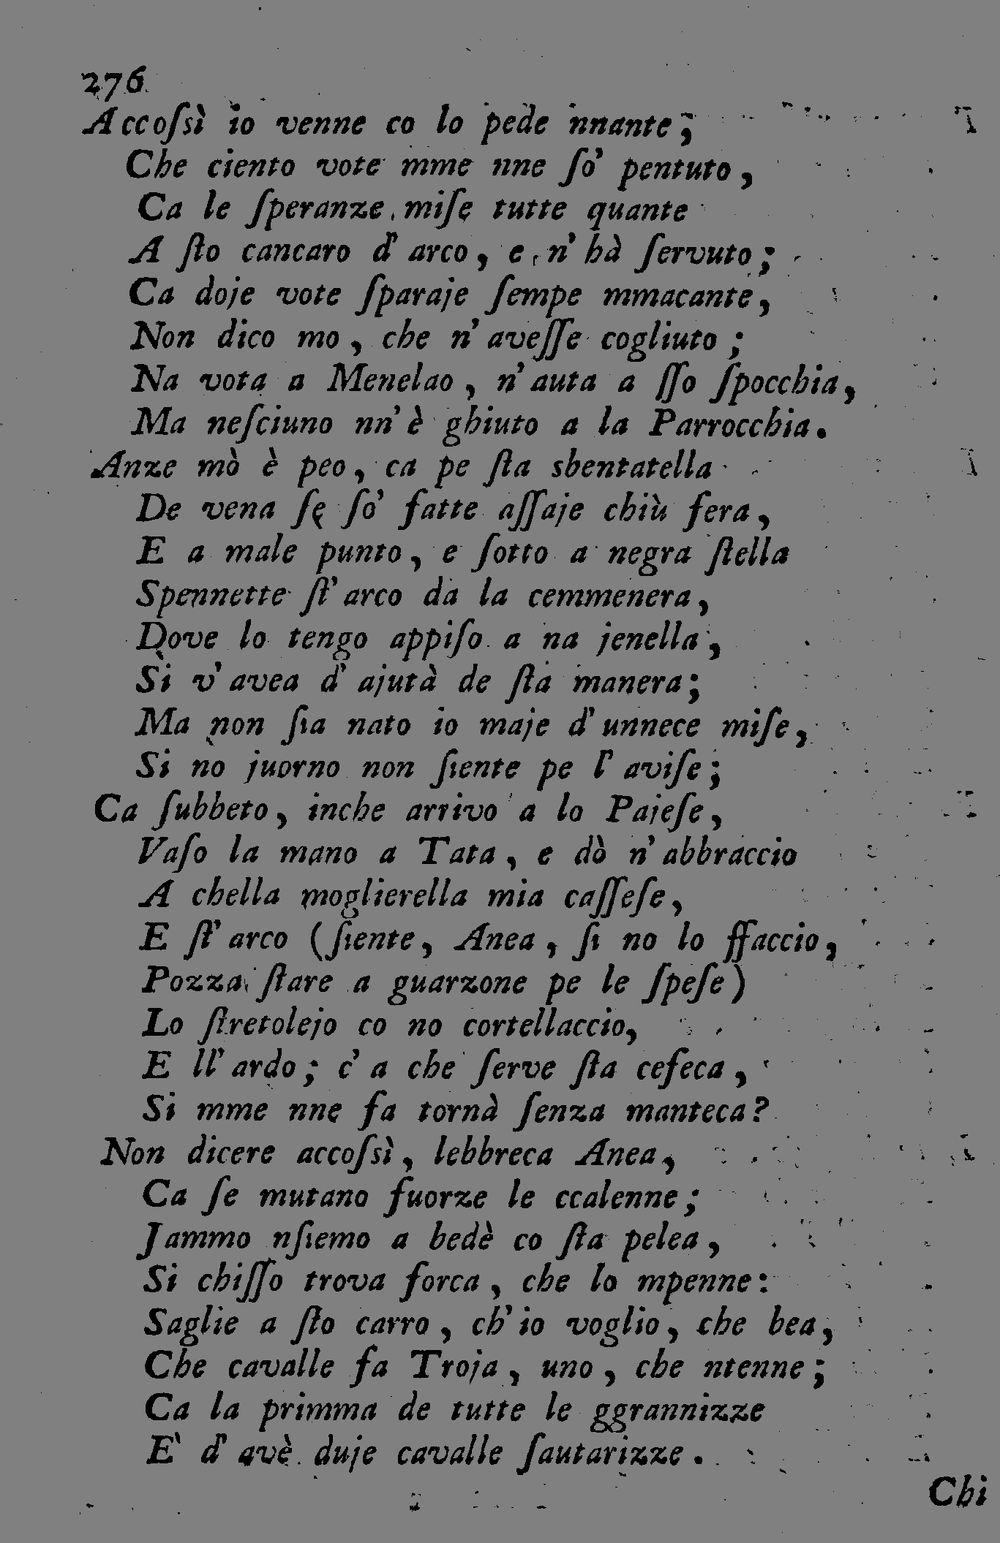 276
Accoſsì io venne co lo pede nnante;
Che ciento vote mme nne ſo' pentuto,
Ca le ſperanze miſe tutte quante
A ſto cancaro d'arco, e n'hà ſervuto;
Ca doje vote ſparaje ſempe mmacante,
Non dico mo, che n'aveſſe cogliuto;
Na vota a Menelao, n'auta a ſſo ſpocchia,
Ma neſciuno nn'è ghiuto a la Parrocchia.
Anze mò è peo, ca pe ſta sbentatella
De vena ſe ſo' fatte aſſaje chiù fera,
E a male punto, e ſotto a negra ſtella
Spennette ſt'arco da la cemmenera,
Dove lo tengo appiſo a na jenella,
Si v'avea d'ajutà de ſta manera;
Ma non ſia nato io maje d'unnece miſe,
Si no juorno non ſiente pe l'aviſe;
Ca ſubbeto, inche arrivo a lo Pajeſe,
Vaſo la mano a Tata, e dò n'abbraccio
A chella moglierella mia caſſeſe,
E ſt'arco (ſiente, Anea, ſi no lo ffaccio,
Pozza ſtare a guarzone pe le ſpeſe)
Lo ſtretolejo co no cortellaccio,
E ll'ardo; c'a che ſerve ſta ceſeca,
Si mme nne fa tornà ſenza manteca?
Non dicere accoſsì, lebbreca Anea,
Ca ſe mutano fuorze le ccalenne;
Jammo nſiemo a bedè co ſta pelea,
Si chiſſo trova forca, che lo mpenne:
Saglie a ſto carro, ch'io voglio, che bea,
Che cavalle fa Troja, uno, che ntenne;
Ca la primma de tutte le ggrannizze
E' d'avè duje cavalle ſautarizze.
Chi